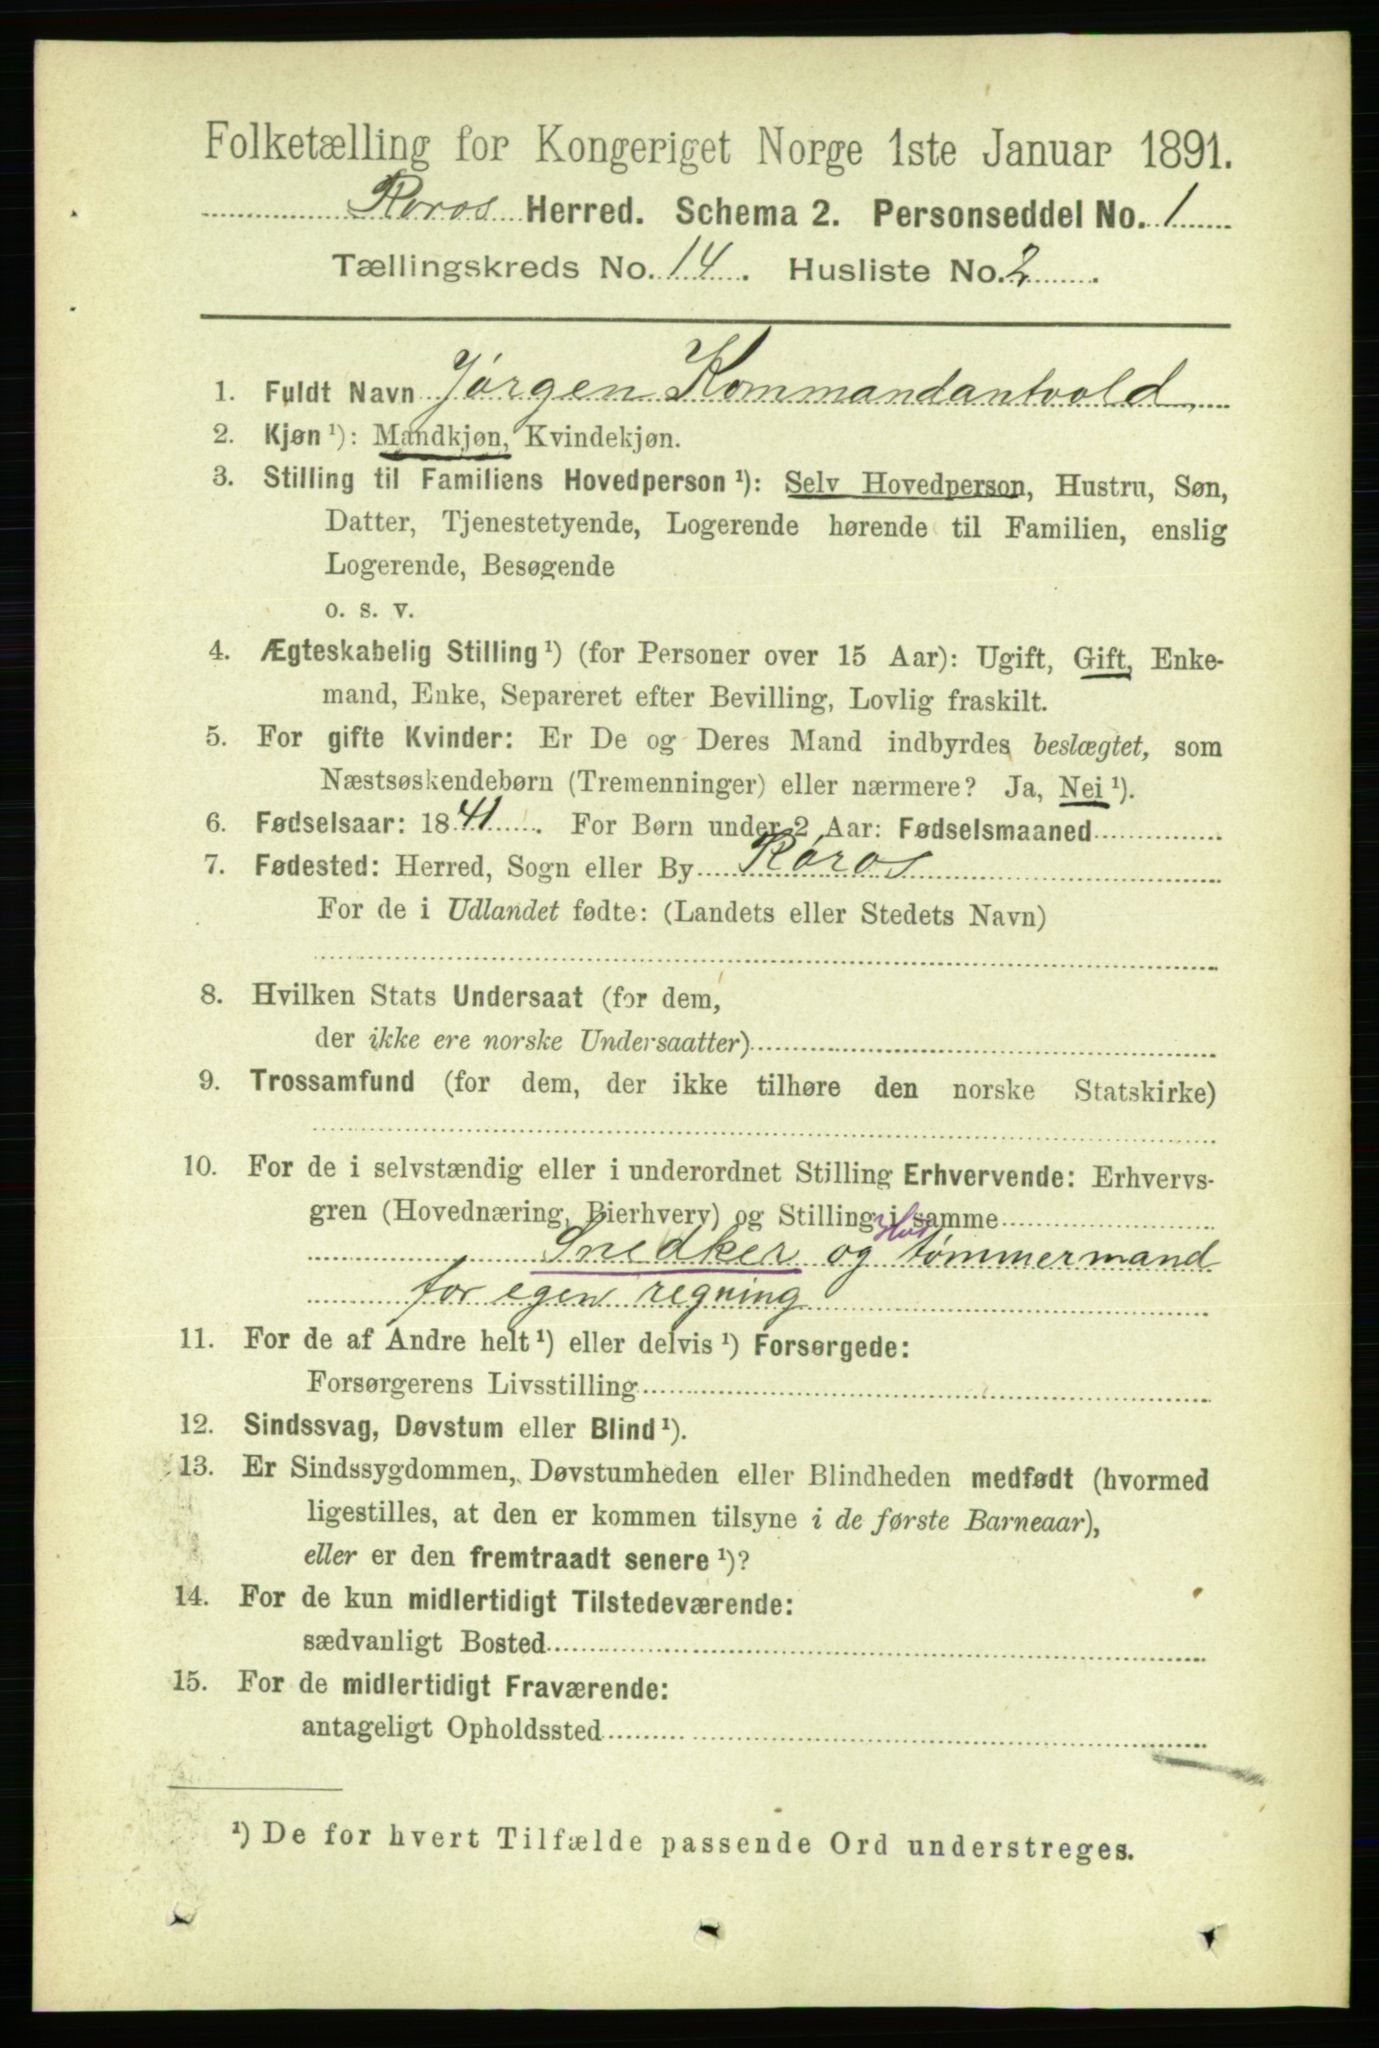 Folketælling for Kongeriget Norge 1ste Januar 1891.
Roros Herred. Schema 2. Personseddel No. 1
Tællingskreds No. 14. Husliste No. 2.
1. Fuldt Navn Jørgen Kommandantvold
2. Kjøn ¹): Mandkjøn, Kvindekjøn.
3. Stilling til Familiens Hovedperson ¹): Selv Hovedperson, Hustru, Søn,
Datter, Tjenestetyende, Logerende hørende til Familien, enslig
Logerende, Besøgende
o. s. v.
4. Ægteskabelig Stilling ¹) (for Personer over 15 Aar): Ugift, Gift, Enke-
mand, Enke, Separeret efter Bevilling, Lovlig fraskilt.
5. For gifte Kvinder: Er De og Deres Mand indbyrdes beslægtet, som
Næstsøskendebørn (Tremenninger) eller nærmere? Ja, Nei ¹).
6. Fødselsaar: 1841. For Børn under 2 Aar: Fødselsmaaned
7. Fødested: Herred, Sogn eller By Røros
For de i Udlandet fødte: (Landets eller Stedets Navn)
8. Hvilken Stats Undersaat (for dem,
der ikke ere norske Undersaatter)
9. Trossamfund (for dem, der ikke tilhøre den norske Statskirke)
10. For de i selvstændig eller i underordnet Stilling Erhvervende: Erhvervs-
gren (Hovednæring, Bierhverv) og Stilling i samme
Snedker og Hus tømmermand
for egen regning
11. For de af Andre helt ¹) eller delvis ¹) Forsørgede:
Forsørgerens Livsstilling
12. Sindssvag, Døvstum eller Blind ¹).
13. Er Sindssygdommen, Døvstumheden eller Blindheden medfødt (hvormed
ligestilles, at den er kommen tilsyne i de første Barneaar),
eller er den fremtraadt senere ¹)?
14. For de kun midlertidigt Tilstedeværende:
sædvanligt Bosted
15. For de midlertidigt Fraværende:
antageligt Opholdssted
¹) De for hvert Tilfælde passende Ord understreges.